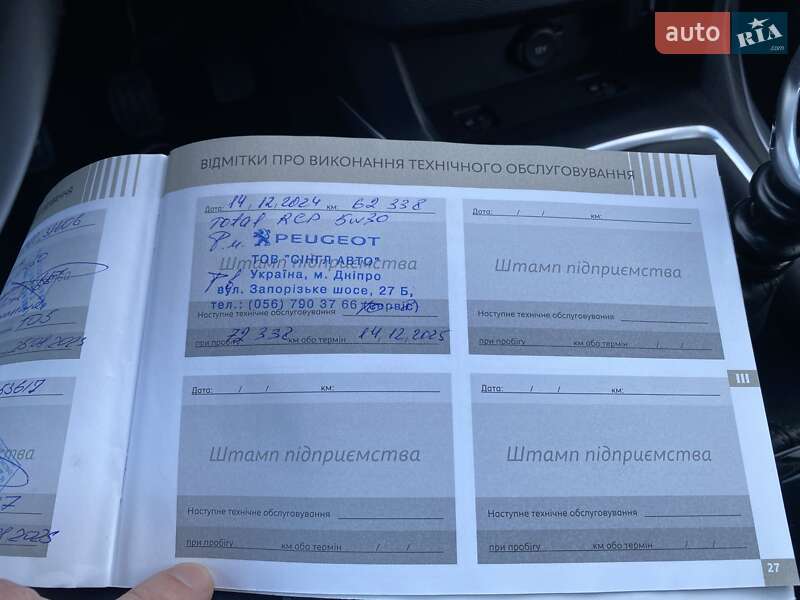 auto RIA.com
ВІДМІТКИ ПРО ВИКОНАННЯ ТЕХНІЧНОГО ОБСЛУГОВУВАННЯ
Дата: 14.12.2024 км: 62 338
Total RCP 5w30
PEUGEOT
ТОВ "СІНГЛ АВТО"
Штамп підприємства
Україна, м. Дніпро
вул. Запорізьке шосе, 27 Б,
тел.: (056) 790 37 66 (сервіс)
Наступне технічне обслуговування
при пробігу 72 338 км або термін 14.12.2025
Дата: / / км:
Штамп підприємства
Наступне технічне обслуговування
при пробігу км або термін / /
III
Дата: / / км:
Штамп підприємства
Наступне технічне обслуговування
при пробігу км або термін / /
Дата: / / км:
Штамп підприємства
Наступне технічне обслуговування
при пробігу км або термін / /
27